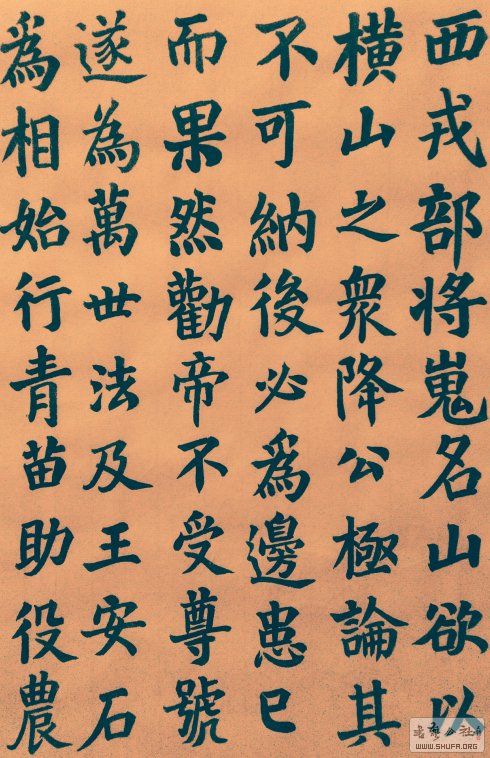 西戎部將嵬名山欲以
橫山之眾降公極論其
不可納後必為邊患已
而果然勸帝不受尊號
遂為萬世法及王安石
為相始行青苗助役農
WWW.SHUFA.ORG